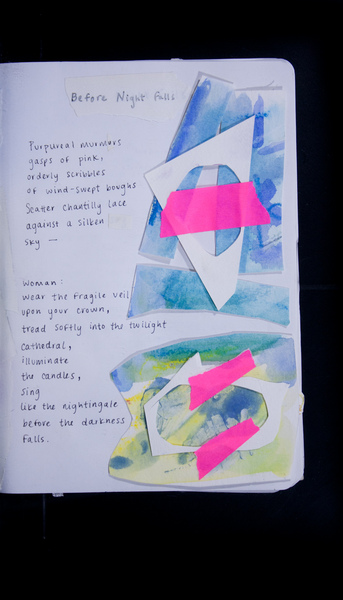 Before Night Falls
Purpureal murmurs
gasps of pink,
orderly scribbles
of wind-swept boughs
Scatter chantilly lace
against a silken
sky —
Woman:
wear the fragile veil
upon your crown,
tread softly into the twilight
cathedral,
illuminate
the candles,
sing
like the nightingale
before the darkness
falls.